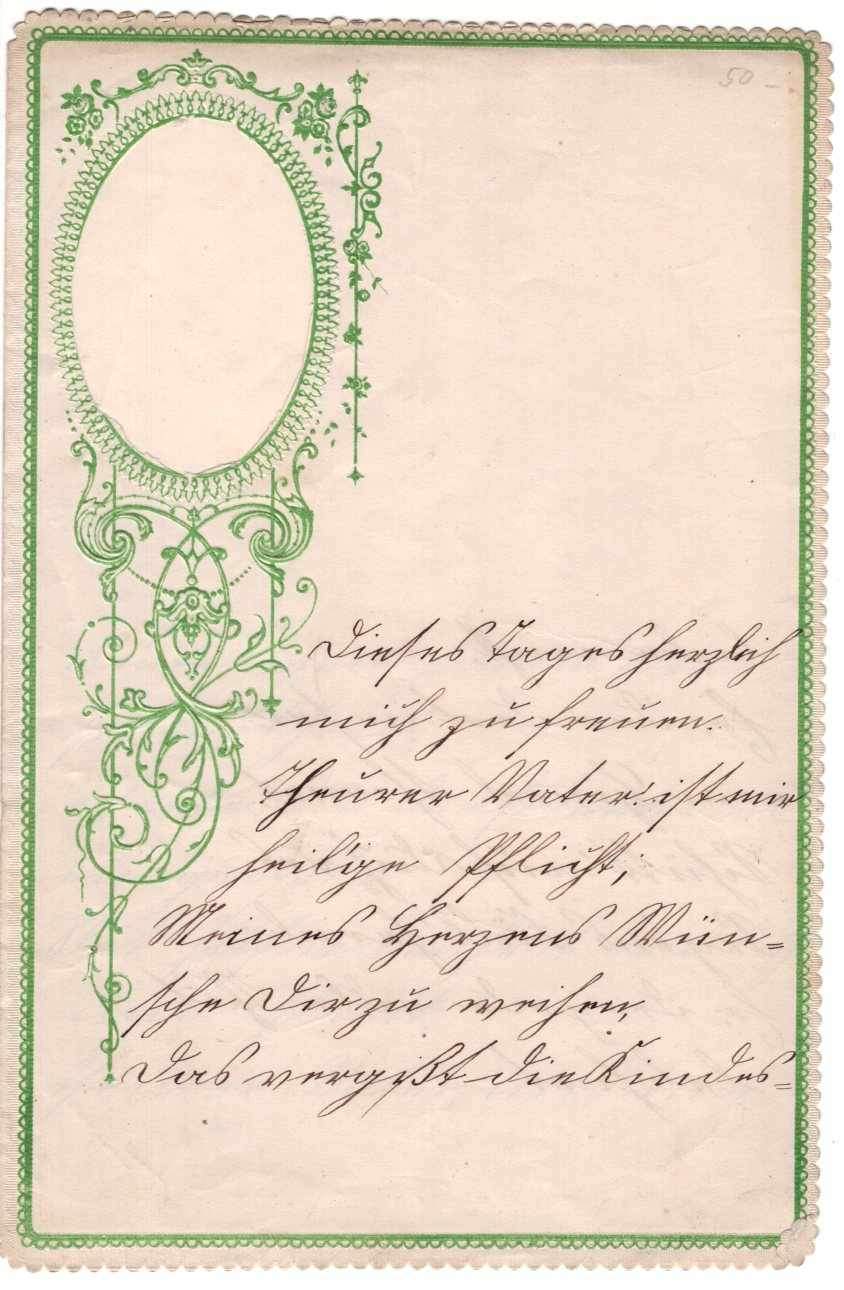 50 –
Dieses Tages herzlich
mich zu freuen.
Theurer Vater! ist mir
heilige Pflicht,
Meines Herzens Wün=
sche Dir zu weihen,
Das vergißt die Kindes=